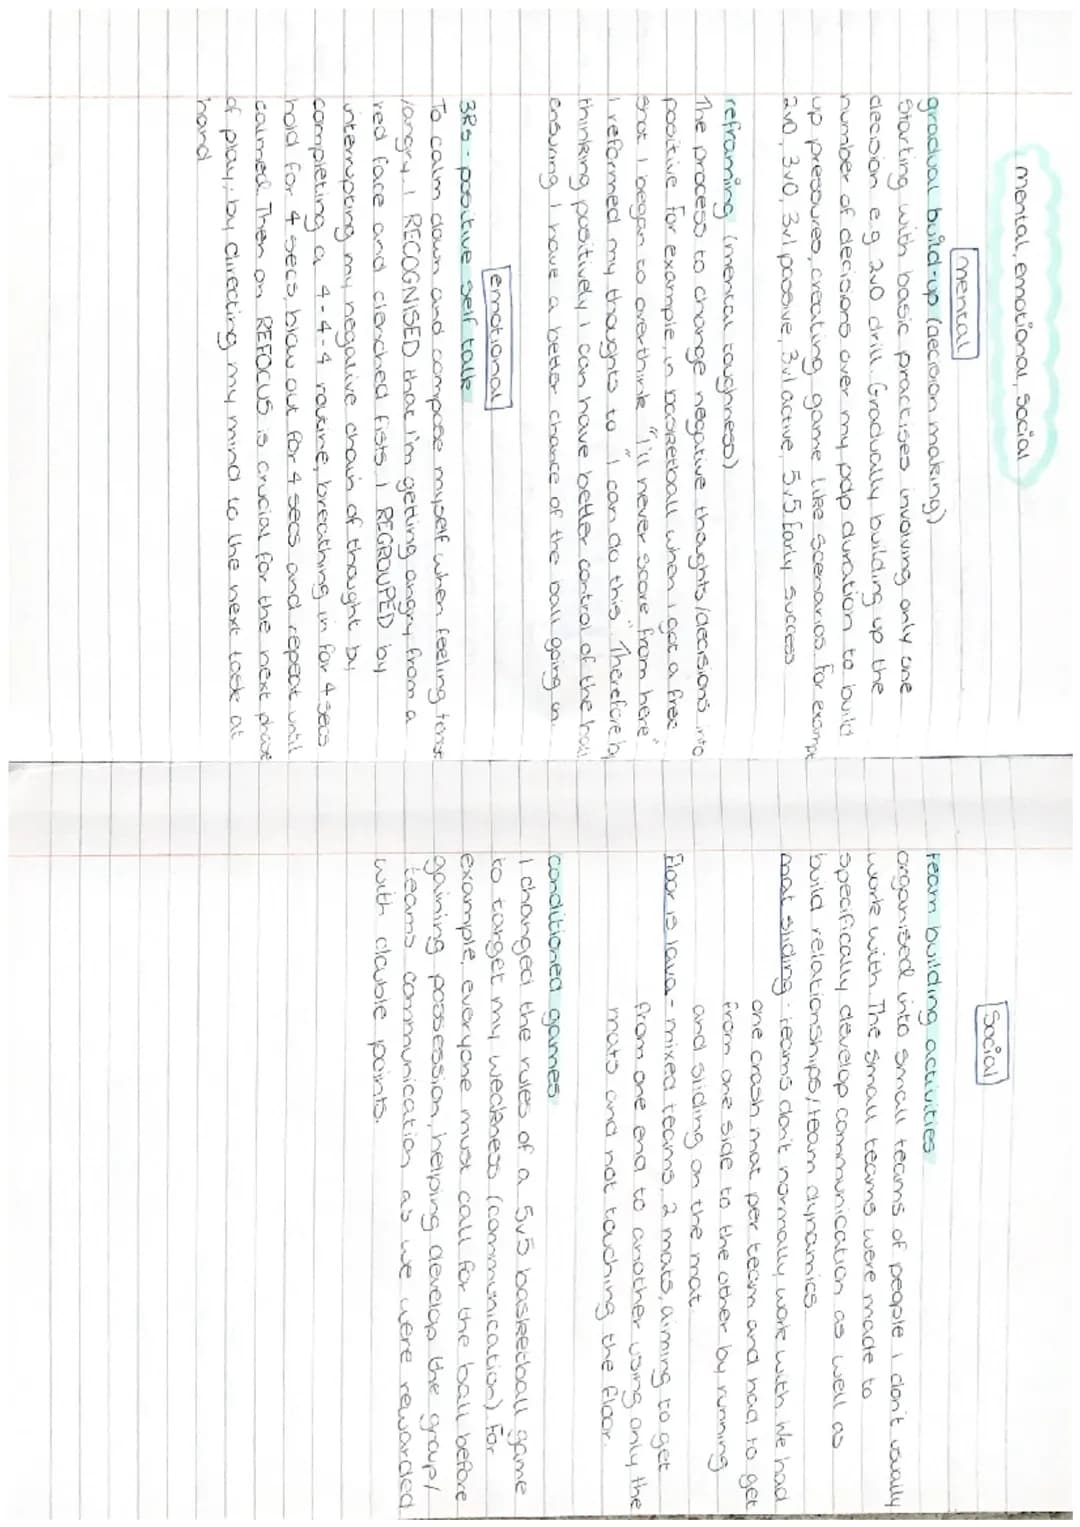 mental, emotional, social
mental
gradual build-up (decision making)
Starting with basic practises involving only one
decision e.g 2v0 drill. Gradually building up the
number of decisions over my pdp duration to build
up pressures, creating game like scenarios. for examp
2v0, 3v0, 3v1 passive, 3v1 active, 5v5. Early success
reframing (mental toughness)
The process to change negative thoughts/decisions into
positive. For example, in basketball when I got a free
shot I began to overthink "I'll never score from here"
I reformed my thoughts to "I can do this". Therefore by
thinking positively I can have better control of the ball
ensuring I have a better chance of the ball going in.
emotional
3Rs - positive self talk
To calm down and compose myself when feeling tense
/angry. I RECOGNISED that I'm getting angry from a
red face and clenched fists. I REGROUPED by
interrupting my negative chain of thought by
completing a 4-4-4 routine, breathing in for 4 secs
hold for 4 secs, blow out for 4 secs and repeat until
calmed. Then on REFOCUS is crucial for the next phase
of play, by directing my mind to the next task at
hand
Social
team building activities
organised into small teams of people I don't usually
work with. The small teams were made to
specifically develop communication as well as
build relationships/team dynamics.
mat sliding - teams don't normally work with. We had
one crash mat per team and had to get
from one side to the other by running
and sliding on the mat
Floor is lava - mixed teams, 2 mats, aiming to get
from one end to another using only the
mats and not touching the floor.
conditioned games
I changed the rules of a 5v5 basketball game
to target my weakness (communication). For
example, everyone must call for the ball before
gaining possession, helping develop the group/
teams communication as we were rewarded
with double points.